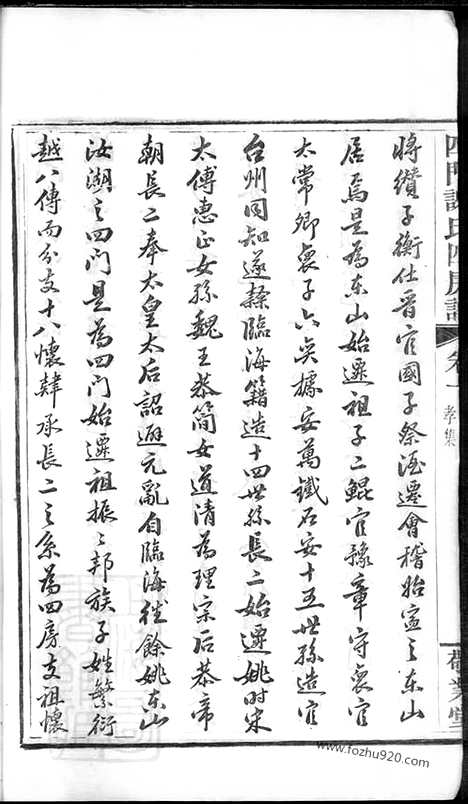 將纘子衡仕晉官國子祭酒遷會稽始寧之東山
居焉是為東山始遷祖子二鯤官豫章守裒官
太常卿裒子六奕據安萬鐵石安十五世孫造官
台州同知遂隸臨海籍造十四世孫長二始遷姚時宋
太傅惠正女孫魏王恭簡女道清為理宗后恭帝
朝長二奉太皇太后詔避元亂自臨海徙餘姚東山
汝湖之四門是為四門始遷祖振之邦族子姓繁衍
越八傳而分支十八懷肆承長二之系為四房支祖懷
四門謝氏四房譜 卷一 孝集
www.fozhu920.com